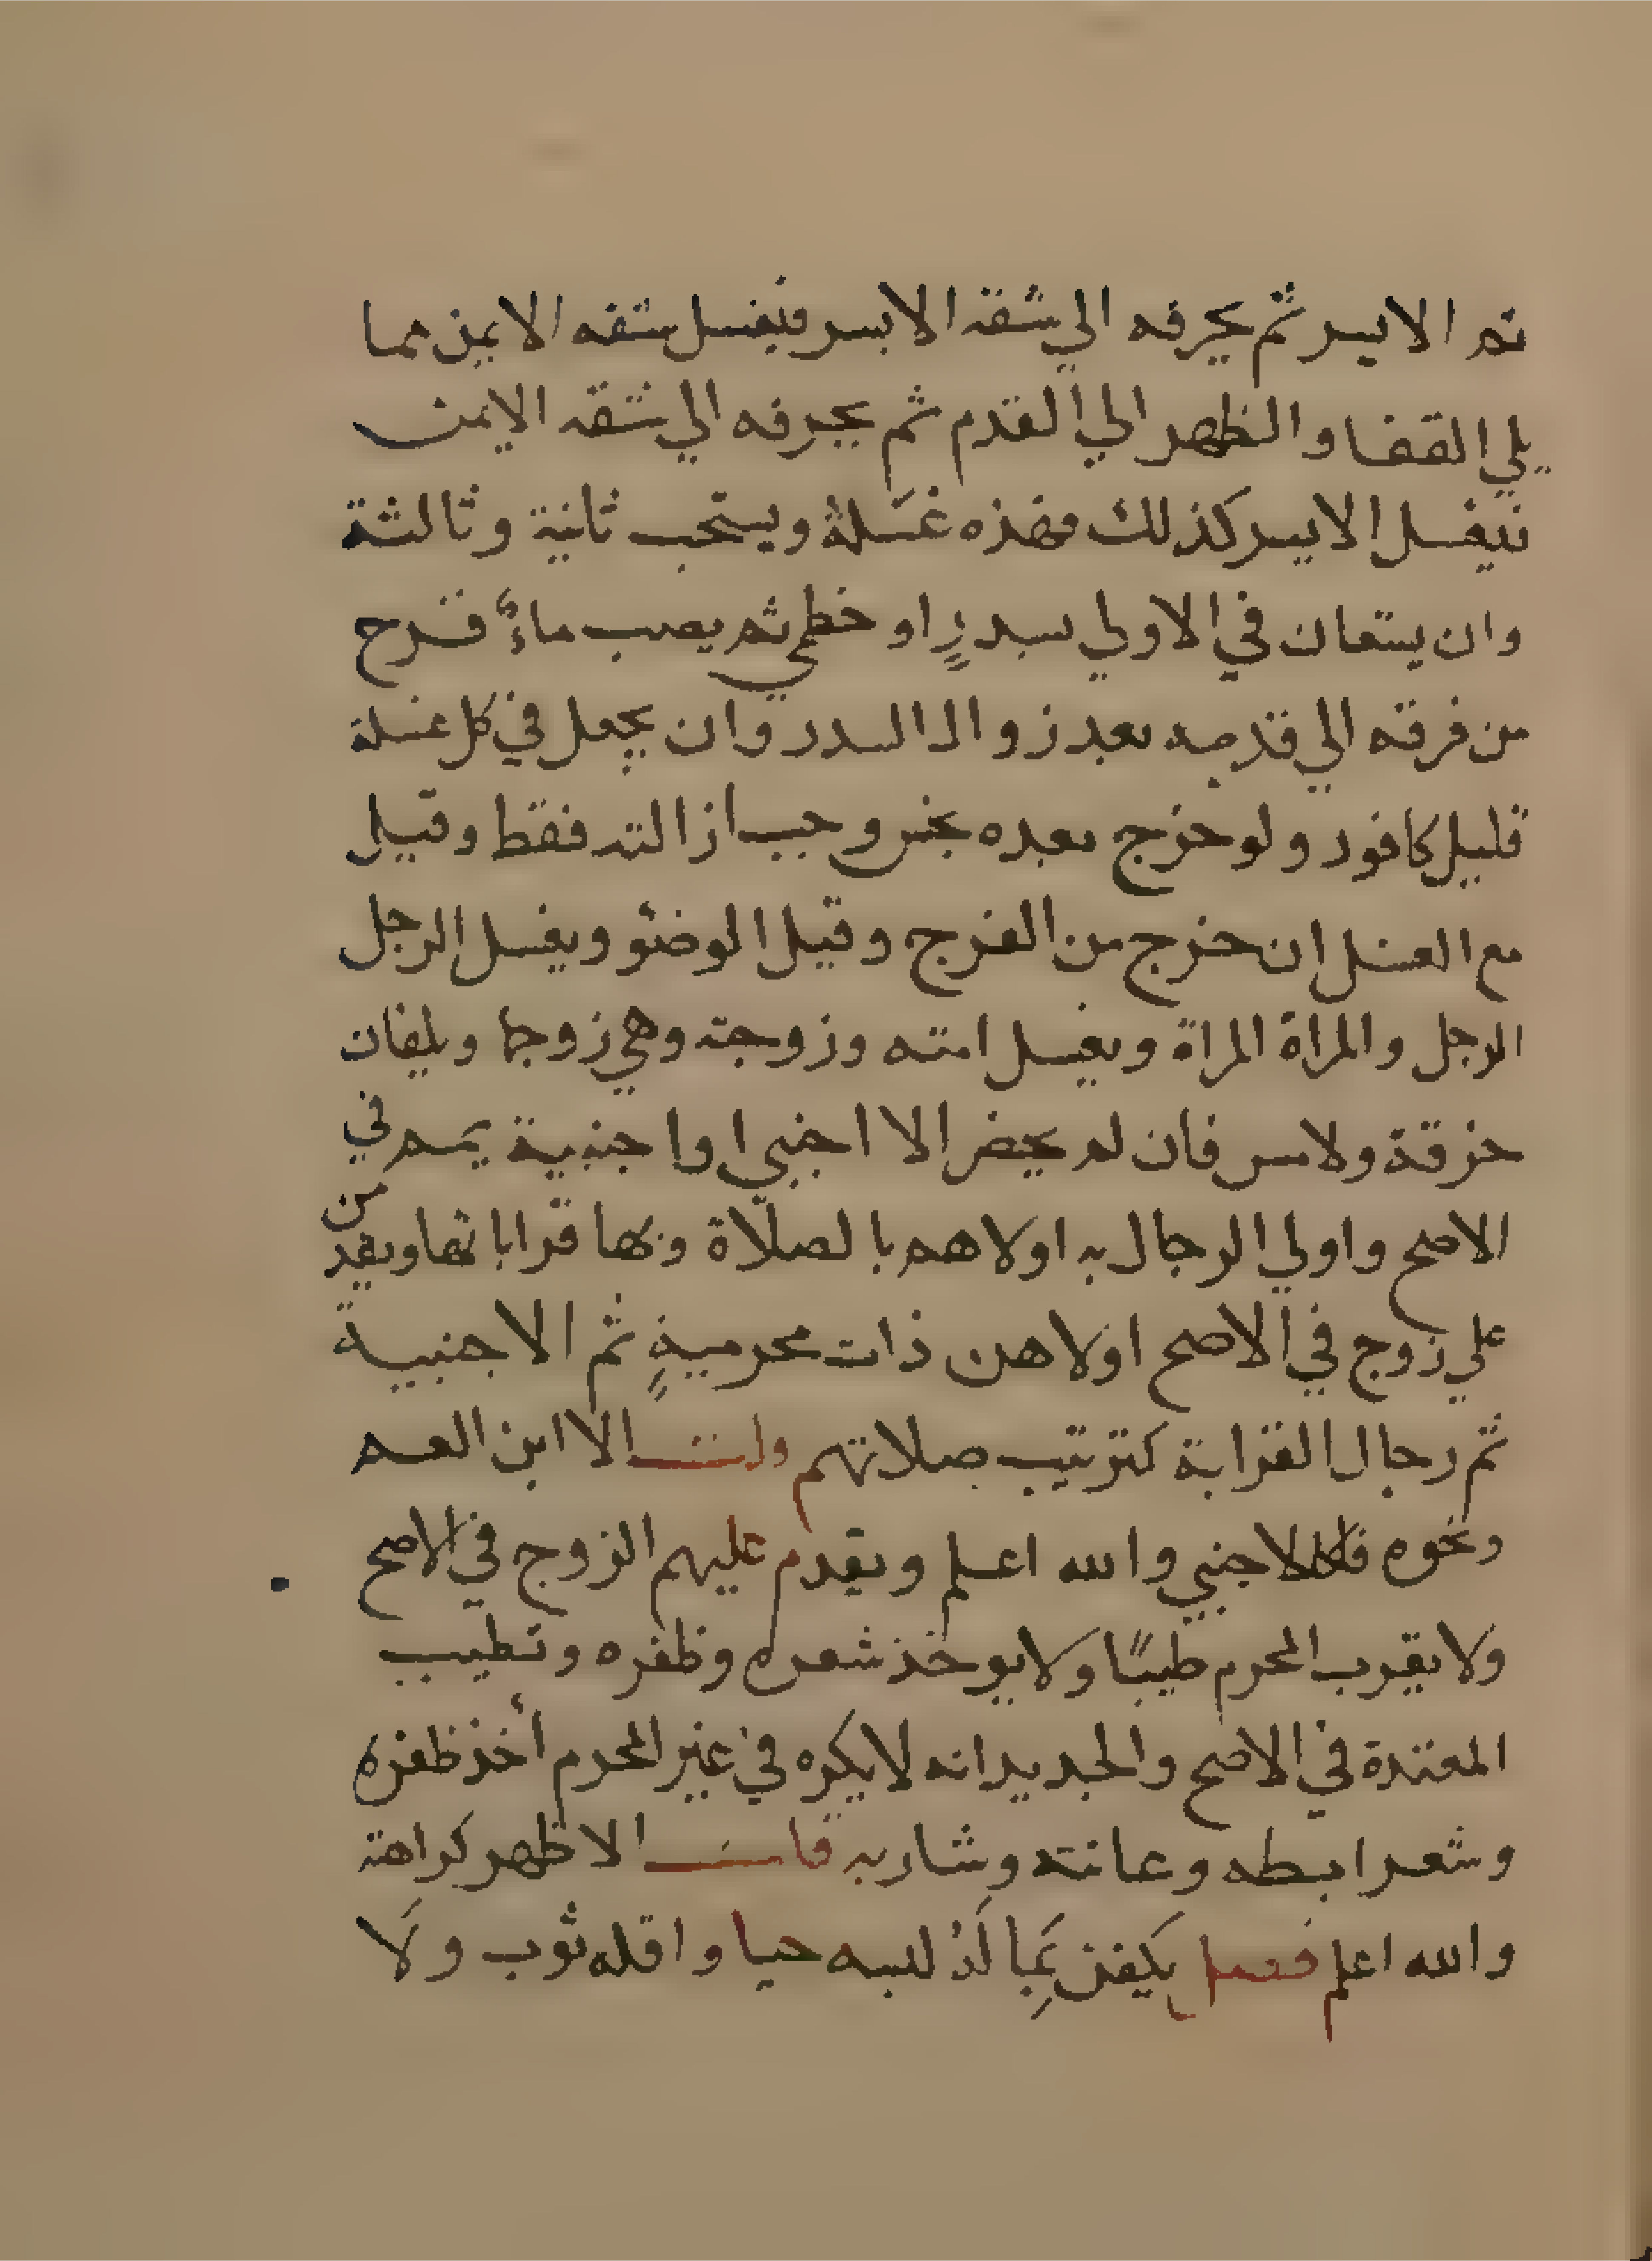 ثم الايسر ثم يحرفه الي شقه الايسر فيغسل شقه الايمن مما
يلي القفا والظهر الي القدم ثم يحرفه الي شقه الايمن
فيغسل الايسر كذلك فهذه غسلة ويستحب ثانية وثالثة
وان يستعان في الاولي بسدرٍ او خطمي ثم يصب ماءٌ قرح
من فرقه الي قدميه بعد زوال السدر وان يجعل في كل غسلة
قليل كافور ولو خرج بعده نجس وجب ازالته فقط وقيل
مع الغسل ان خرج من الفرج وقيل الوضئو ويغسل الرجل
الرجل والمراة المراة ويغسل امته وزوجته وهي زوجها ويلفان
خرقة ولا مس فان لم يحضر الا اجنبي او اجنبية يمم في
الاصح واولي الرجال به اولاهم بالصلاة وبها قراباتها ويقدمن
علي زوج في الاصح اولاهن ذات محرميةٍ ثم الاجنبية
ثم رجال القرابة كترتيب صلاتهم قلت الا ابن العم
ونحوه فكالاجنبي والله اعلم ويقدم عليهم الزوج في الاصح
ولا يقرب المحرم طيبًا ولا يوخذ شعره وظفره وتطيب
المعتدة في الاصح والجديد انه لا يكره في غير المحرم أخذ ظفره
وشعر ابطه وعانته وشاربه قلت الاظهر كراهته
والله اعلم فصل يكفن بِمَا لَهُ لبسه حيا واقله ثوب ولَا